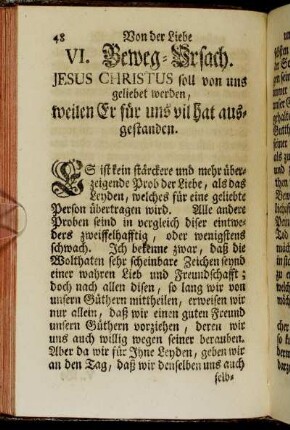 48 Von der Liebe
VI. Beweg-Vrsach.
JESUS CHRISTUS soll von uns
geliebet werden,
weilen Er für uns vil hat aus-
gestanden.
ES ist kein stärckere und mehr über-
zeigende Prob der Liebe, als das
Leyden, welches für eine geliebte
Person übertragen wird. Alle andere
Proben seind in vergleich diser eintwe-
ders zweiffelhafftig, oder wenigstens
schwach. Ich bekenne zwar, daß die
Wolthaten sehr scheinbare Zeichen seynd
einer wahren Lieb und Freundschafft;
doch nach allen disen, so lang wir von
unsern Güthern mittheilen, erweisen wir
nur allein, daß wir einen guten Freund
unsern Güthern vorziehen, deren wir
uns auch willig wegen seiner berauben.
Aber da wir für Ihne Leyden, geben wir
an den Tag, daß wir denselben uns auch
selb-